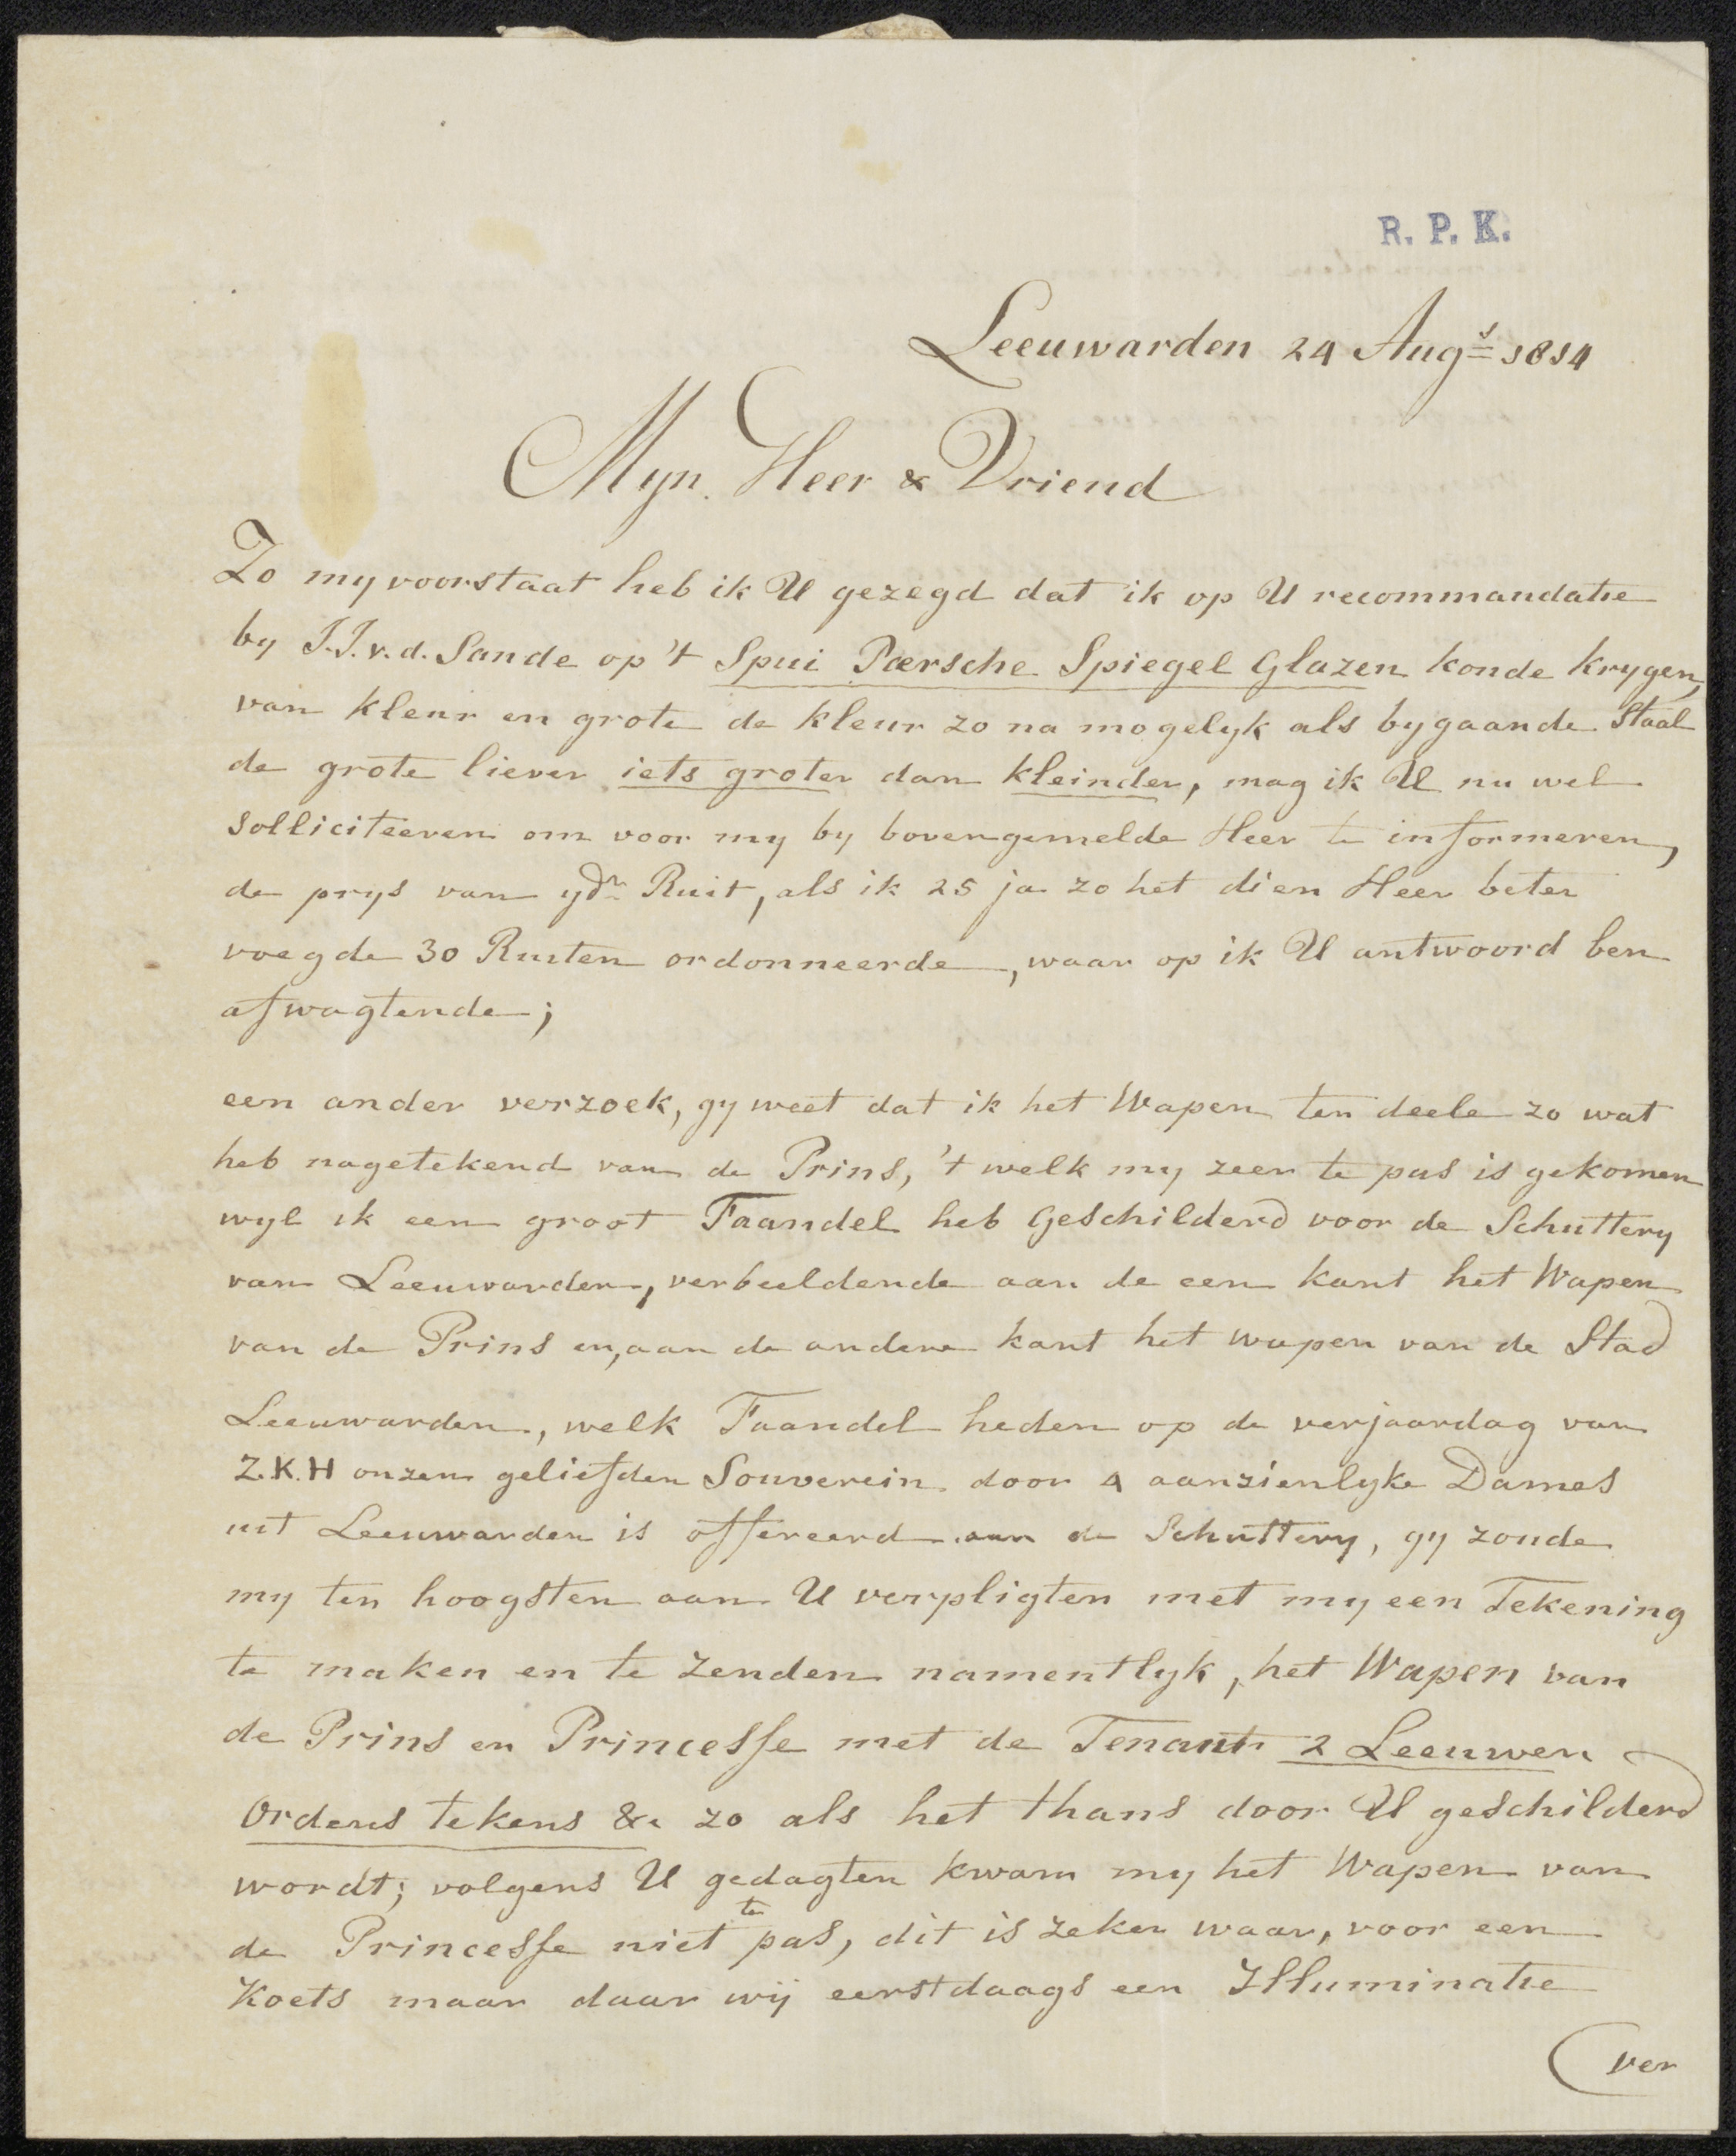 R. P. K.
Leeuwarden 24 Augs 1814
Myn Heer & Vriend
Zo my voorstaat heb ik U gezegd dat ik op U recommandatie
by J.J.v.d. Sande op 't Spui Pærsche Spiegel Glazen konde krygen,
van kleur en grote de kleur zo na mogelyk als bygaande Staal
de grote liever iets groter dan kleinder, mag ik U nu wel
solliciteeren om voor my by bovengemelde Heer te informeren,
de prys van ydr Ruit, als ik 25 ja zo het dien Heer beter
voegde 30 Ruiten ordonneerde, waar op ik U antwoord ben
afwagtende;
een ander verzoek, gy weet dat ik het Wapen ten deele zo wat
heb nagetekend van de Prins, 't welk my zeer te pas is gekomen
wyl ik een groot Faandel heb Geschilderd voor de Schuttery
van Leeuwarden, verbeeldende aan de een kant het Wapen
van de Prins en, aan de andere kant het wapen van de Stad
Leeuwarden, welk Faandel heden op de verjaardag van
Z.K.H onzen geliefden Souverein door 4 aanzienlyke Dames
uit Leeuwarden is offereerd aan de Schuttery, gy zoude
my ten hoogsten aan U verpligten met my een Tekening
te maken en te zenden namentlyk, het Wapen van
de Prins en Princesse met de Tenant 2 Leeuwen
Ordens tekens &c zo als het thans door U geschilderd
wordt; volgens U gedagten kwam my het Wapen van
de Princesse niet te pas, dit is zeker waar, voor een
Koets maar daar wij eerstdaags een Illuminatie
ver